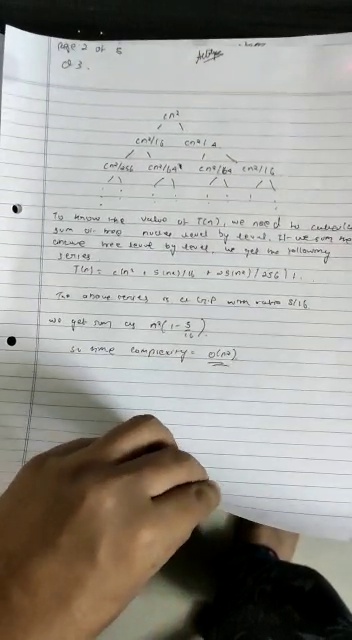 Page 2 of 5
Q3.
cn²
cn²/16 cn²/4
cn²/256 cn²/64 cn²/64 cn²/16
To know the value of T(n), we need to calculate
sum of tree nodes level by level. If we sum the
above tree level by level, we get the following
series
T(n) = c(n² + 5(n²)/16 + 25(n²)/256) + .
The above series is a G.P with ratio 5/16
we get sum as n²(1 - 5/16).
so time complexity = O(n²)